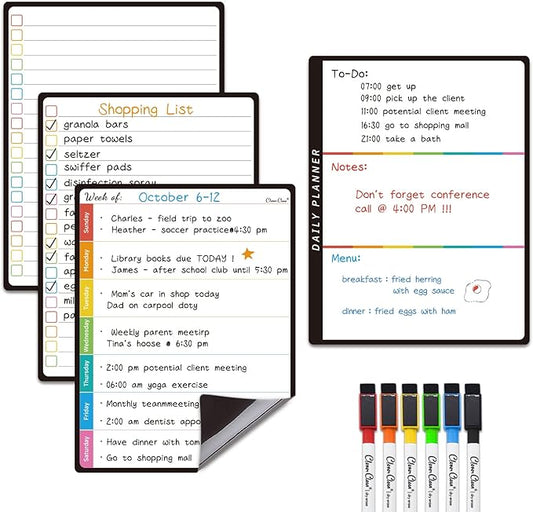 Shopping List
granola bars
paper towels
seltzer
swiffer pads
disinfection spray
Week of: October 6-12
Clean Clear
Sunday
· Charles - field trip to zoo
· Heather - soccer practice#4:30 pm
Monday
· Library books due TODAY !
· James - after school club until 5:30 pm
Tuesday
· Mom's car in shop today
Dad on carpool doty
Wednesday
· Weekly parent meetirp
Tina's hoose # 6:30 pm
Thursday
· 2:00 pm potential client meeting
· 06:00 am yoga exercise
Friday
· Monthly teammeeting
· 2:00 am dentist appo
Saturday
· Have dinner with tom
· Go to shopping mall
DAILY PLANNER
To-Do:
07:00 get up
09:00 pick up the client
11:00 potential client meeting
16:30 go to shopping mall
21:00 take a bath
Notes:
Don't forget conference
call @ 4:00 PM !!!
Menu:
breakfast : fried herring
with egg sauce
dinner : fried eggs with ham